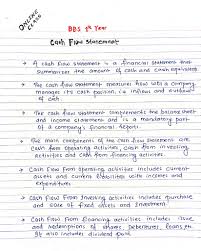 ONLINE
CLASS
BBS 1st Year
Cash Flow Statement
→ A cash flow statement is a financial statement that
summarizes the amount of cash and cash equivalents
→ The cash flow statement measures how well a company
manages its cash position, i.e inflows and outflows
of cash.
→ The cash flow statement complements the balance sheet
and income statement and is a mandatory part
of a company's financial reports.
→ The main components of the cash flow statement are
cash from operating activities, cash from investing
activities and cash from financing activities.
→ Cash Flow From Operating activities includes current
assets and current liabilities with incomes and
expenditures
→ Cash Flow From Investing activities includes purchase
and sale of fixed assets and investment
→ Cash Flow From financing activities includes issue
and redemptions of shares, debentures, loans etc
It also includes dividend paid.